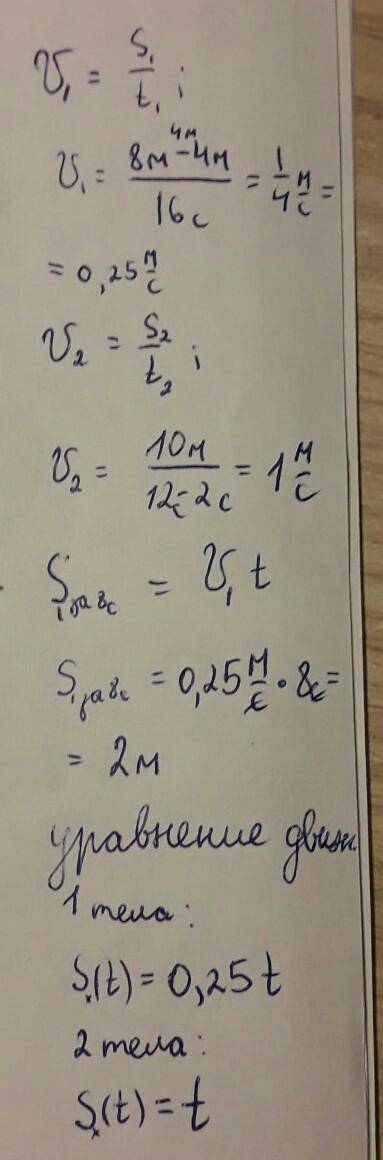 V₁ = S₁/t₁ ;
V₁ = (8м - 4м)/16с 4м = 1/4 м/с =
= 0,25 м/с
V₂ = S₂/t₂ ;
V₂ = 10м/(12с - 2с) = 1 м/с
S₁ за 8с = V₁ t
S₁ за 8с = 0,25 м/с · 8с =
= 2м
уравнение движ.
1 тела:
Sₓ(t) = 0,25 t
2 тела:
Sₓ(t) = t